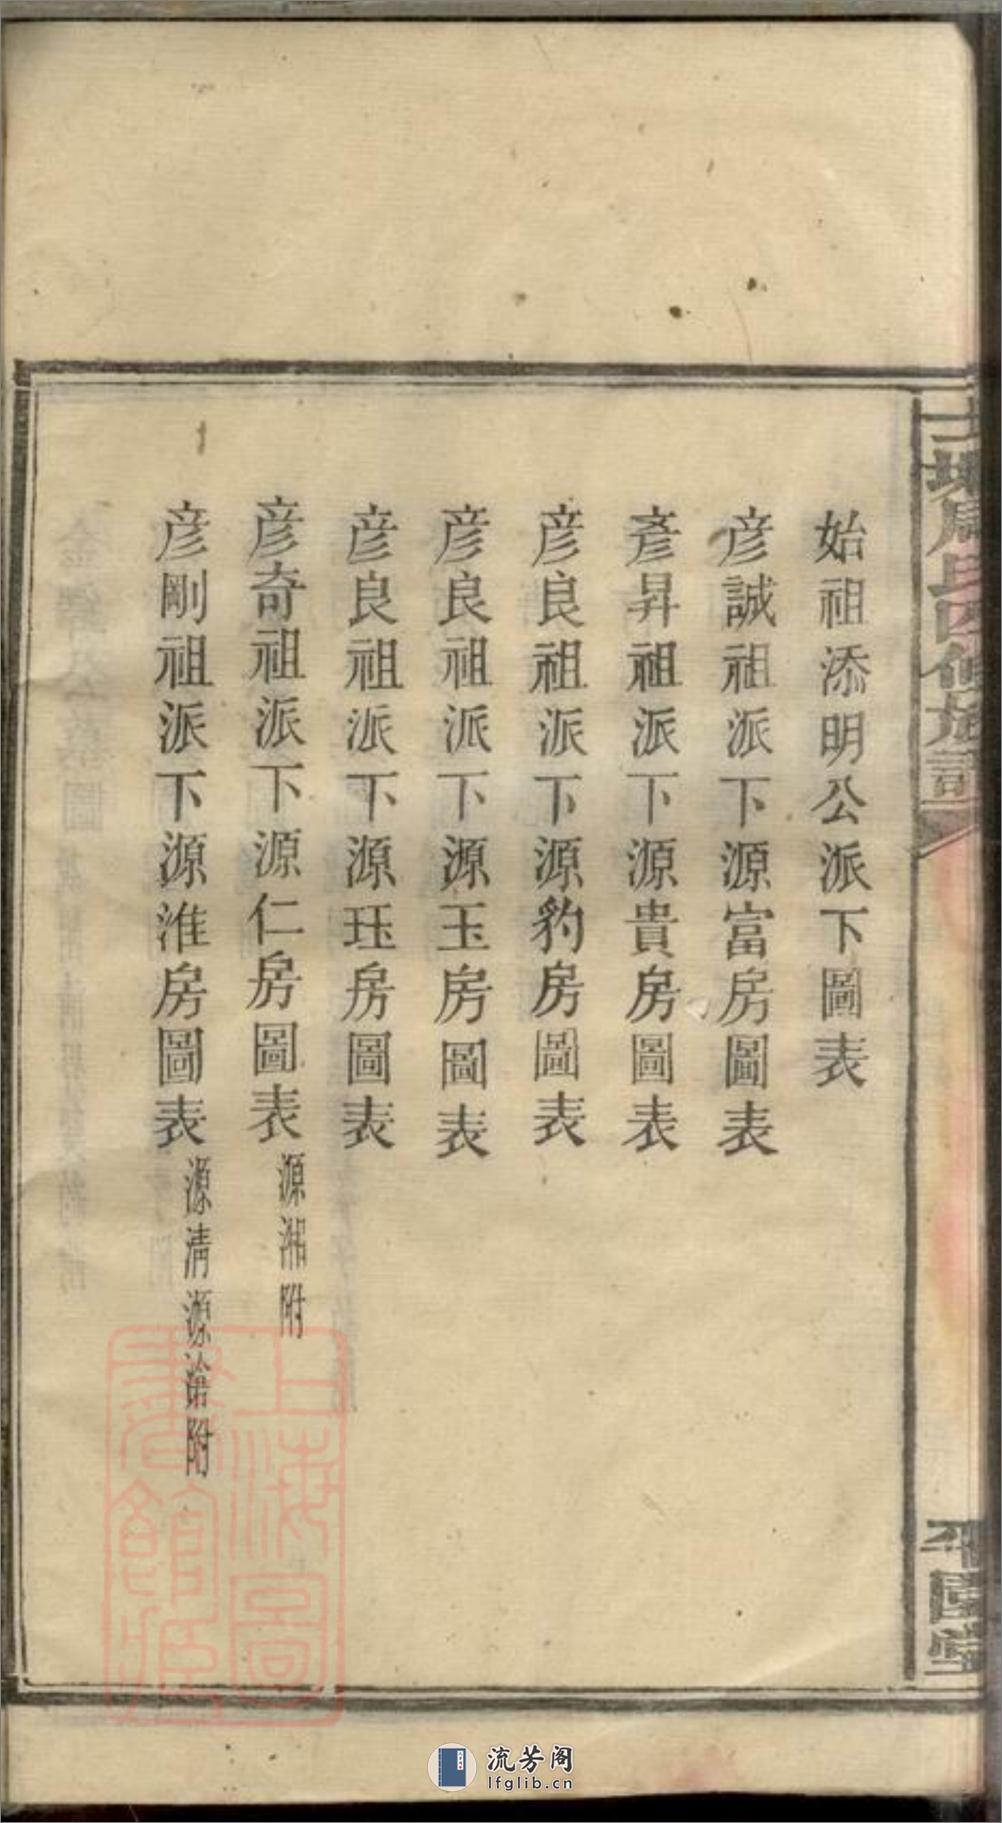 士塘周氏四修族譜
平園堂
始祖添明公派下圖表
彦誠祖派下源富房圖表
彥昇祖派下源貴房圖表
彦良祖派下源豹房圖表
彦良祖派下源玉房圖表
彦良祖派下源珏房圖表
彦奇祖派下源仁房圖表 源湘附
彦剛祖派下源淮房圖表 源清源論附
上海圖書館藏
流芳阁
lfglib.cn